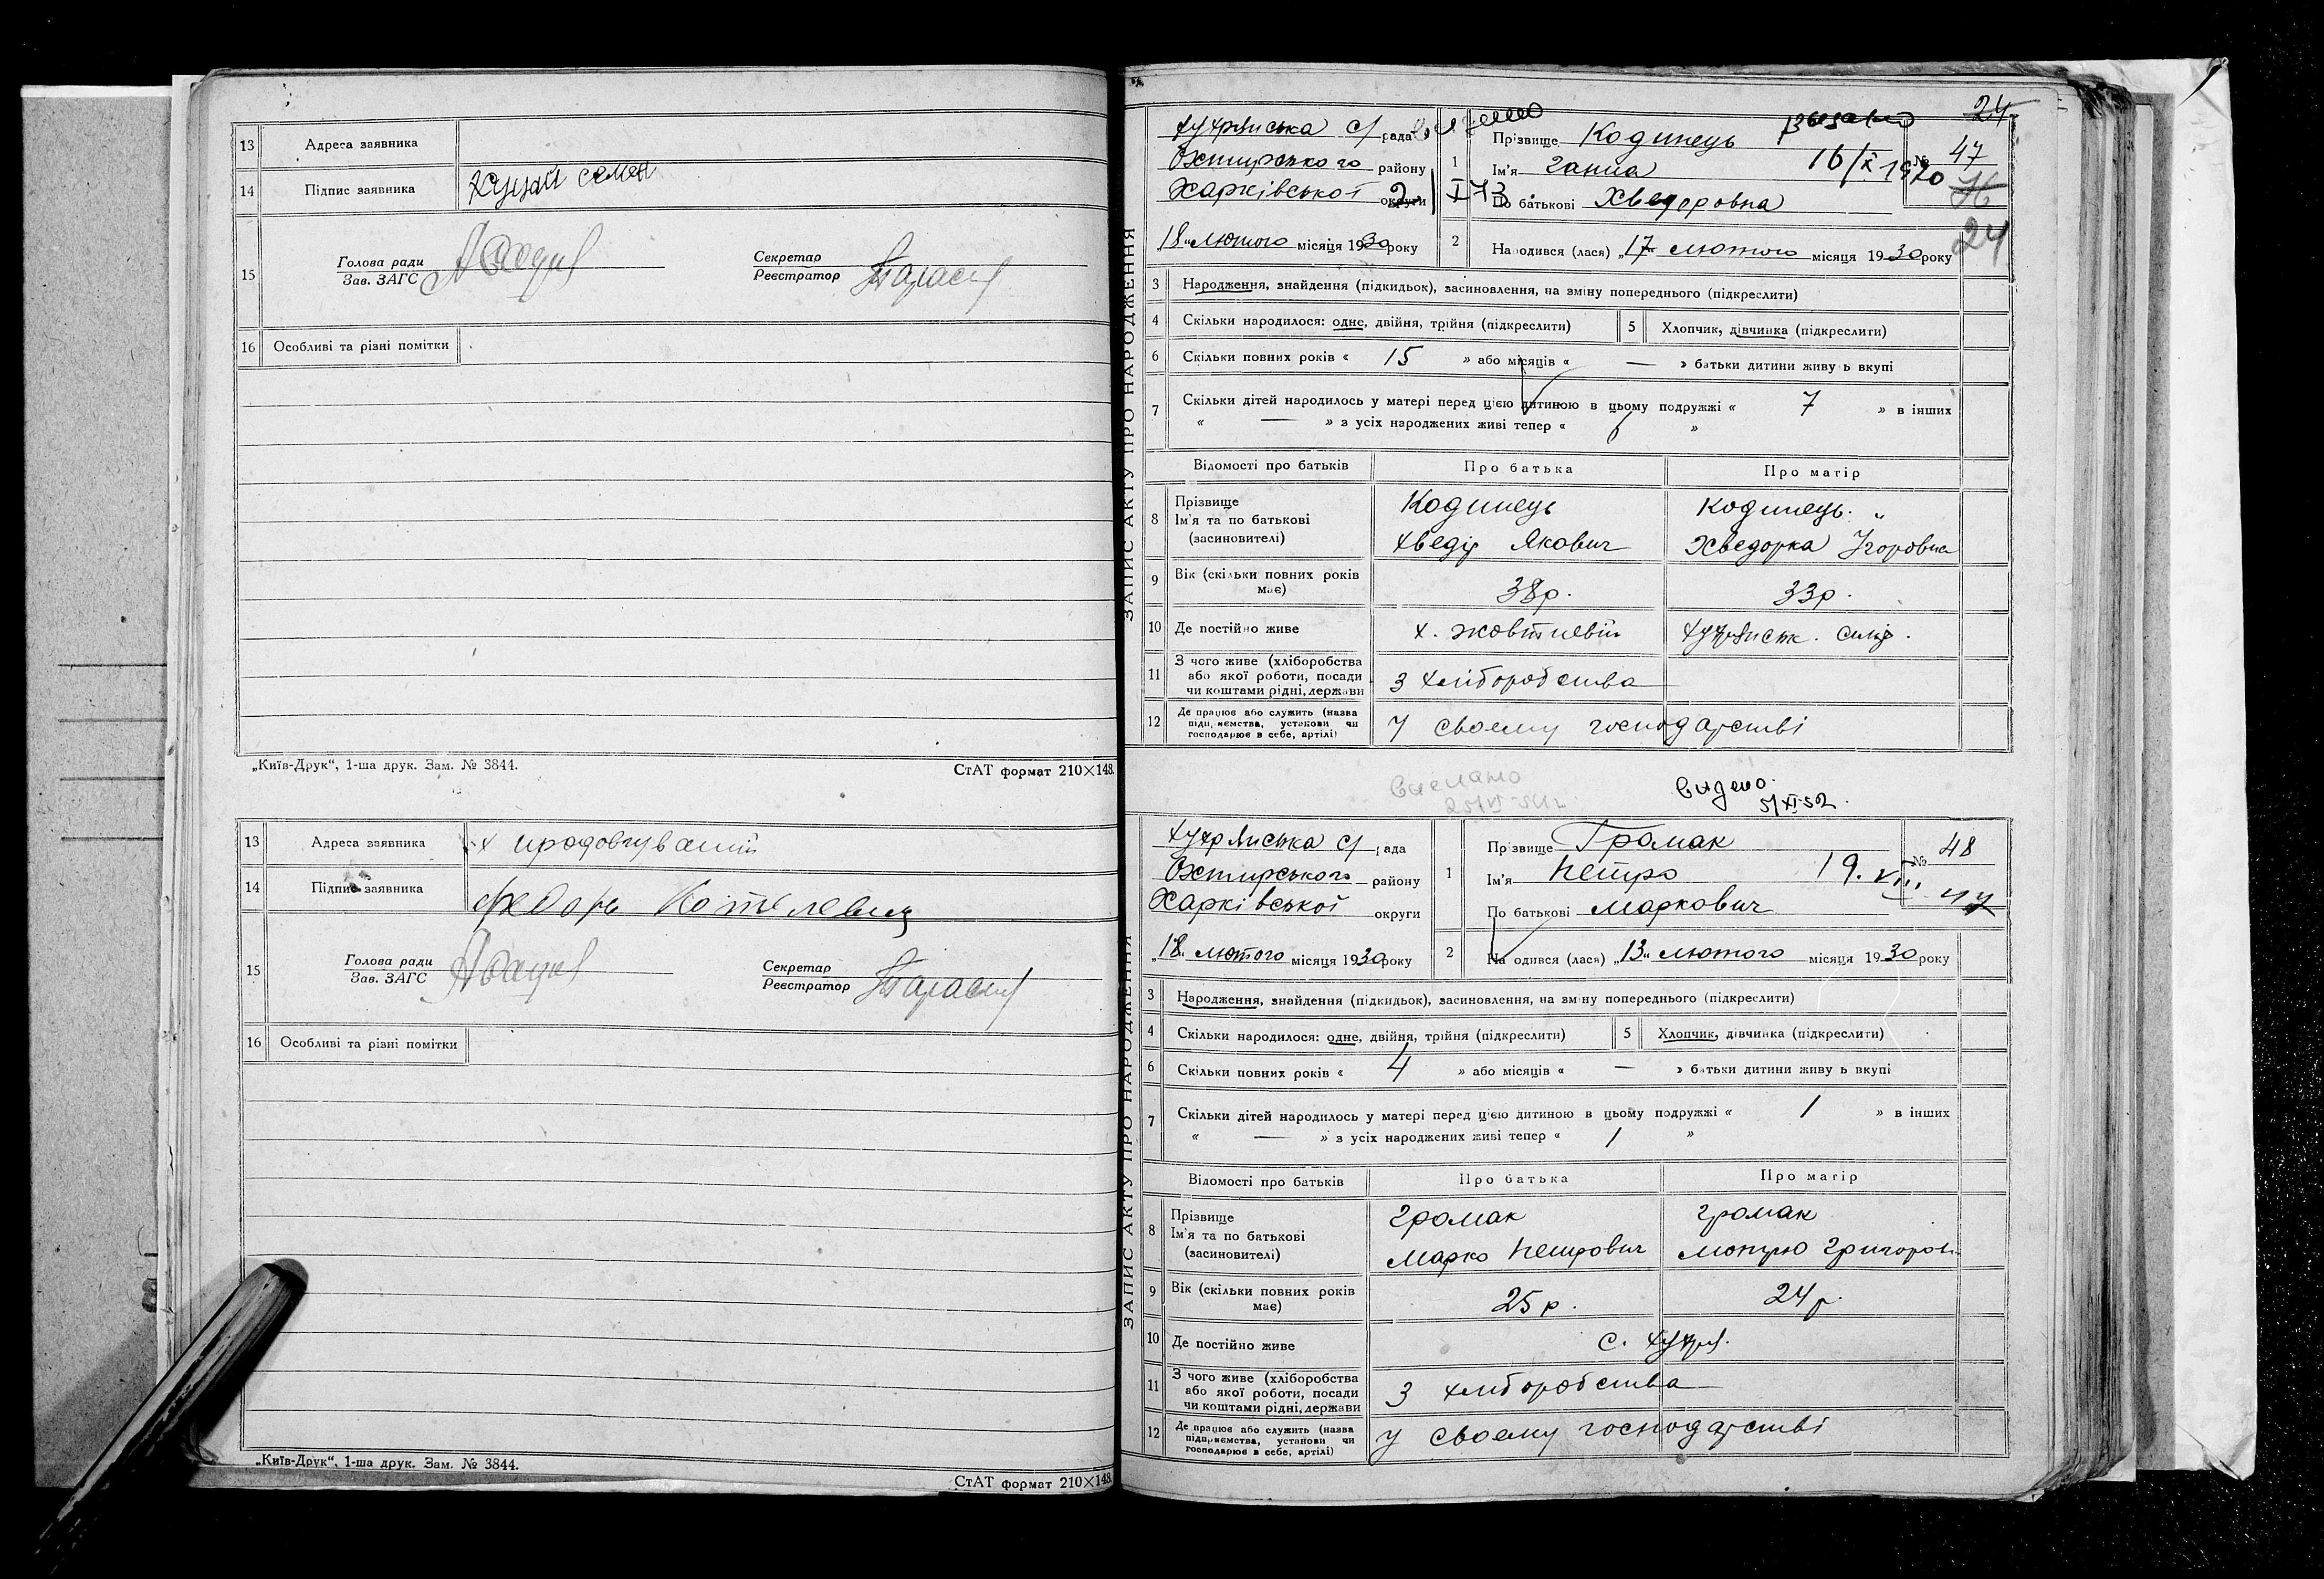 13 Адреса заявника
14 Підпис заявника
15 Голова ради Секретар
Зав. ЗАГС Реєстратор
16 Особливі та різні помітки
„Київ-Друк“, 1-ша друк. Зам. № 3844. СтАТ формат 210×148.
13 Адреса заявника х
14 Підпис заявника
15 Голова ради Секретар
Зав. ЗАГС Реєстратор
16 Особливі та різні помітки
„Київ-Друк“, 1-ша друк. Зам. № 3844. СтАТ формат 210×148.
24
ЗАПИС АКТУ ПРО НАРОДЖЕННЯ
Хухрянська с/рада
Охтирського району
Харківської округи
„18“ лютого місяця 1930 року
1 Прізвище Кодинець
Ім'я Ганна
По батькові Хведоровна
16/X 1970
№ 47
24
2 Народився (лася) „17“ лютого місяця 1930 року
3 Народження, знайдення (підкидьок), засиновлення, на зміну попереднього (підкреслити)
4 Скільки народилося: одне, двійня, трійня (підкреслити) 5 Хлопчик, дівчинка (підкреслити)
6 Скільки повних років « 15 » або місяців « — » батьки дитини живуть вкупі
7 Скільки дітей народилось у матері перед цією дитиною в цьому подружжі « 7 » в інших
« — » з усіх народжених живі тепер « »
Відомості про батьків Про батька Про матір
8 Прізвище Кодинець Кодинець
Ім'я та по батькові
(засиновителі) Хведір Якович Хведорка Їгоровна
9 Вік (скільки повних років має) 38р. 33р.
10 Де постійно живе х. Жовтневій
11 З чого живе (хліборобства
або якої роботи, посади
чи коштами рідні, держави з хліборобства
12 Де працює або служить (назва
підприємства, установи чи
господарює в себе, артілі) у своєму господарстві
Видено
5/XI-52.
ЗАПИС АКТУ ПРО НАРОДЖЕННЯ
Хухрянська с/рада
Охтирського району
Харківської округи
„18“ лютого місяця 1930 року
1 Прізвище Громак
Ім'я Петро
По батькові Маркович
19. VIII
№ 48
2 Народився (лася) „13“ лютого місяця 1930 року
3 Народження, знайдення (підкидьок), засиновлення, на зміну попереднього (підкреслити)
4 Скільки народилося: одне, двійня, трійня (підкреслити) 5 Хлопчик, дівчинка (підкреслити)
6 Скільки повних років « 4 » або місяців « — » батьки дитини живуть вкупі
7 Скільки дітей народилось у матері перед цією дитиною в цьому подружжі « 1 » в інших
« — » з усіх народжених живі тепер « 1 »
Відомості про батьків Про батька Про матір
8 Прізвище Громак Громак
Ім'я та по батькові
(засиновителі) Марко Петрович
9 Вік (скільки повних років має) 25р. 24р.
10 Де постійно живе с. Хухря.
11 З чого живе (хліборобства
або якої роботи, посади
чи коштами рідні, держави з хліборобства
12 Де працює або служить (назва
підприємства, установи чи
господарює в себе, артілі) у своєму господарстві